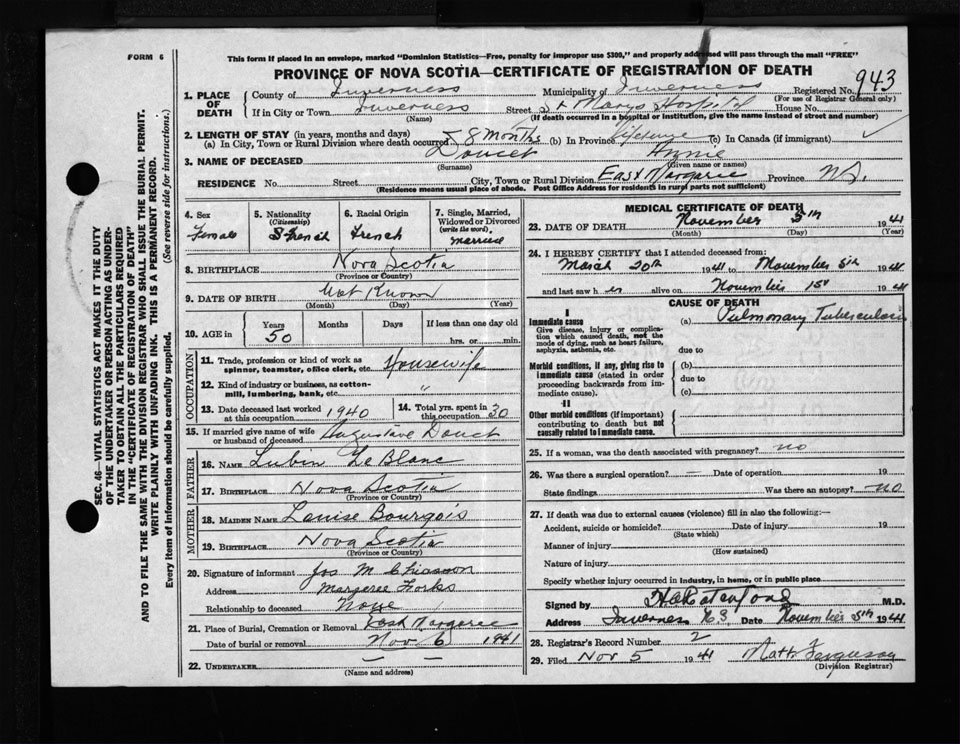 FORM 6
This form if placed in an envelope, marked "Dominion Statistics—Free, penalty for improper use $300," and properly addressed will pass through the mail "FREE"
PROVINCE OF NOVA SCOTIA—CERTIFICATE OF REGISTRATION OF DEATH
943
1. PLACE OF DEATH
County of Inverness Municipality of Inverness Registered No.
(For use of Registrar General only)
If in City or Town Inverness Street St Marys Hospital House No.
(Name) (If death occurred in a hospital or institution, give the name instead of street and number)
2. LENGTH OF STAY (in years, months and days)
(a) In City, Town or Rural Division where death occurred 8 months (b) In Province lifetime (c) In Canada (if immigrant)
3. NAME OF DECEASED Doucet Annie
(Surname) (Given name or names)
RESIDENCE No. Street City, Town or Rural Division East Margaree Province N.S.
(Residence means usual place of abode. Post Office Address for residents in rural parts not sufficient)
4. Sex Female
5. Nationality (Citizenship) French
6. Racial Origin French
7. Single, Married, Widowed or Divorced (write the word) married
8. BIRTHPLACE Nova Scotia
(Province or Country)
9. DATE OF BIRTH Not Known
(Month) (Day) (Year)
10. AGE in Years Months Days If less than one day old
50 hrs. or min.
OCCUPATION
11. Trade, profession or kind of work as spinner, teamster, office clerk, etc. Housewife
12. Kind of industry or business, as cotton-mill, lumbering, bank, etc. "
13. Date deceased last worked at this occupation 1940
14. Total yrs. spent in this occupation 30
15. If married give name of wife or husband of deceased Augustave Doucet
FATHER
16. NAME Lubin LeBlanc
17. BIRTHPLACE Nova Scotia
(Province or Country)
MOTHER
18. MAIDEN NAME Louise Bourgois
19. BIRTHPLACE Nova Scotia
(Province or Country)
20. Signature of informant Jos M Chiasson
Address Margaree Forks
Relationship to deceased None
21. Place of Burial, Cremation or Removal East Margaree
Date of burial or removal Nov 6 1941
22. UNDERTAKER — —
(Name and address)
MEDICAL CERTIFICATE OF DEATH
23. DATE OF DEATH November 5th 1941
(Month) (Day) (Year)
24. I HEREBY CERTIFY that I attended deceased from:
March 20th 1941 to November 5th 1941
and last saw her alive on November 1st 1941
CAUSE OF DEATH
I
Immediate cause (a) Pulmonary Tuberculosis
Give disease, injury or complication which caused death, not the mode of dying, such as heart failure, asphyxia, asthenia, etc.
due to
Morbid conditions, if any, giving rise to immediate cause (stated in order proceeding backwards from immediate cause).
(b)
due to
(c)
II
Other morbid conditions (if important) contributing to death but not causally related to immediate cause.
25. If a woman, was the death associated with pregnancy? no
26. Was there a surgical operation? — Date of operation 19
State findings Was there an autopsy? no
27. If death was due to external causes (violence) fill in also the following:—
Accident, suicide or homicide? Date of injury 19
(State which)
Manner of injury
(How sustained)
Nature of injury
Specify whether injury occurred in industry, in home, or in public place
Signed by M.D.
Address Inverness Date November 5th 1941
28. Registrar's Record Number 2
29. Filed Nov 5 1941 Matt Ferguson
(Division Registrar)
SEC. 46—VITAL STATISTICS ACT MAKES IT THE DUTY
OF THE UNDERTAKER OR PERSON ACTING AS UNDER-
TAKER TO OBTAIN ALL THE PARTICULARS REQUIRED
IN THE "CERTIFICATE OF REGISTRATION OF DEATH"
AND TO FILE THE SAME WITH THE DIVISION REGISTRAR WHO SHALL ISSUE THE BURIAL PERMIT.
WRITE PLAINLY WITH UNFADING INK. THIS IS A PERMANENT RECORD.
Every item of information should be carefully supplied. (See reverse side for instructions.)